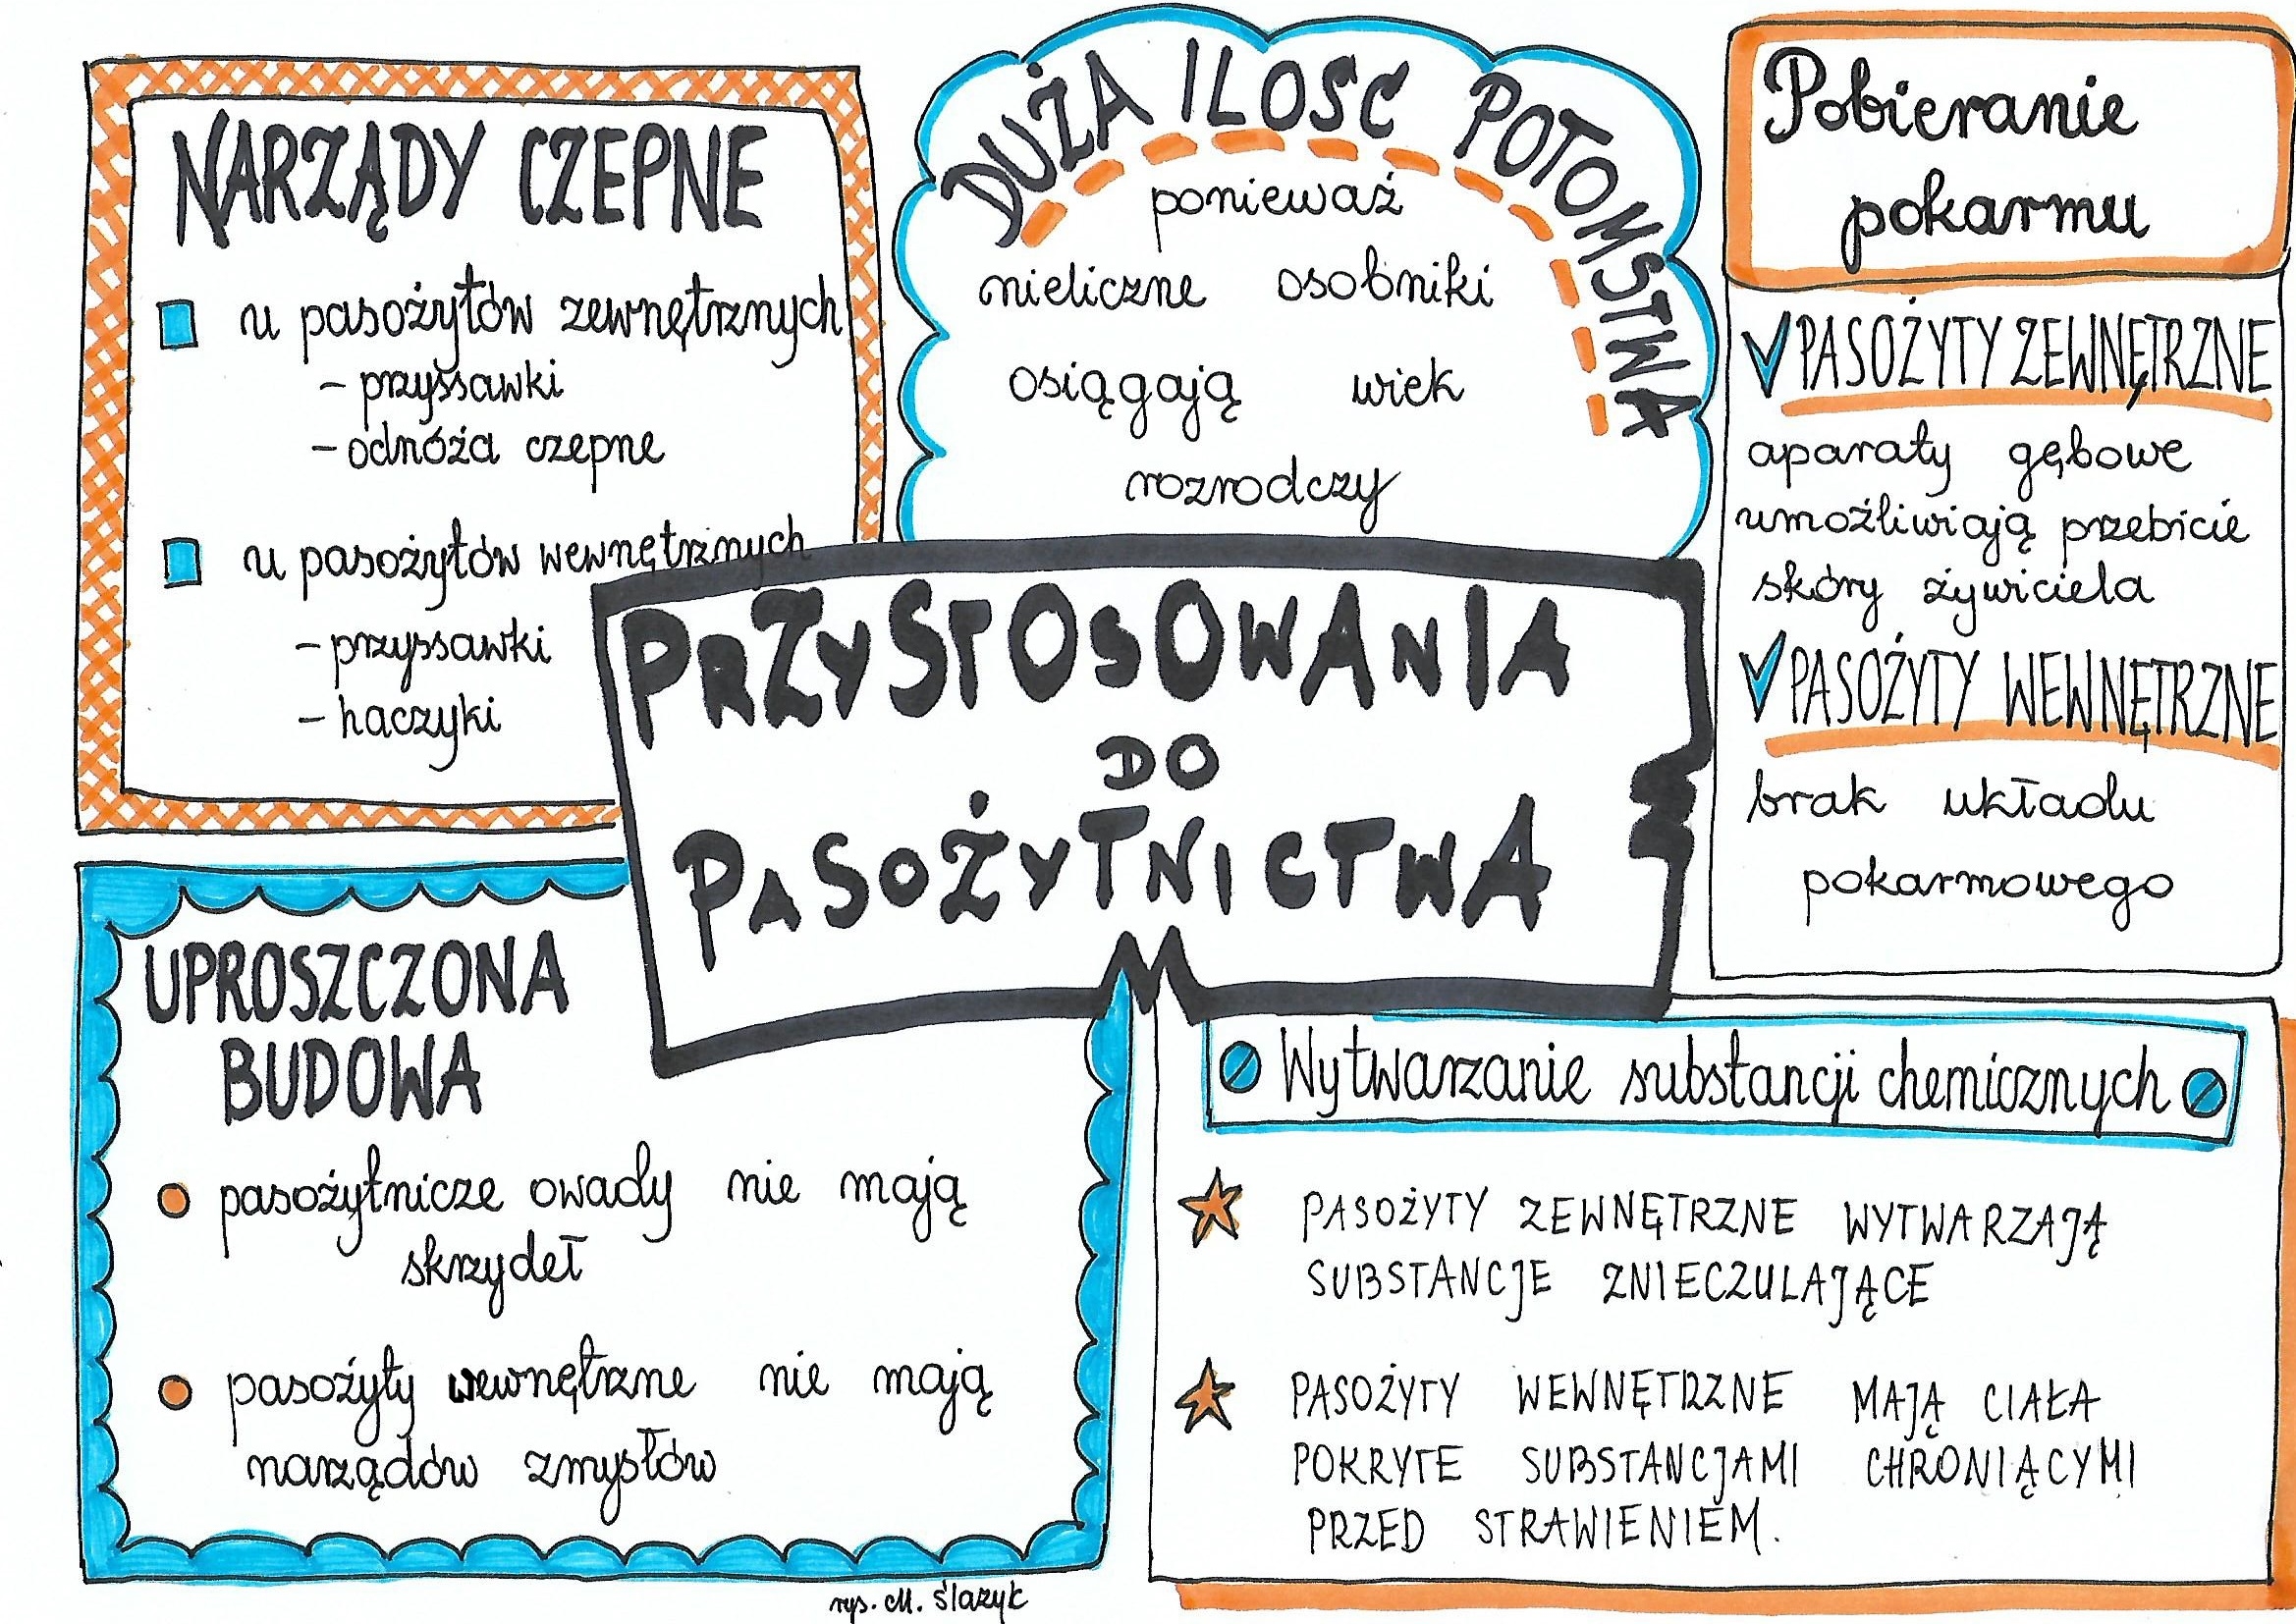 NARZĄDY CZEPNE
u pasożytów zewnętrznych
- przyssawki
- odnóża czepne
u pasożytów wewnętrznych
- przyssawki
- haczyki
DUŻA ILOŚĆ POTOMSTWA
ponieważ
nieliczne osobniki
osiągają wiek
rozrodczy
Pobieranie
pokarmu
PASOŻYTY ZEWNĘTRZNE
aparaty gębowe
umożliwiają przebicie
skóry żywiciela
PASOŻYTY WEWNĘTRZNE
brak układu
pokarmowego
PRZYSTOSOWANIA
DO
PASOŻYTNICTWA
UPROSZCZONA
BUDOWA
pasożytnicze owady nie mają
skrzydeł
pasożyty wewnętrzne nie mają
narządów zmysłów
Wytwarzanie substancji chemicznych
PASOŻYTY ZEWNĘTRZNE WYTWARZAJĄ
SUBSTANCJE ZNIECZULAJĄCE
PASOŻYTY WEWNĘTRZNE MAJĄ CIAŁA
POKRYTE SUBSTANCJAMI CHRONIĄCYMI
PRZED STRAWIENIEM.
rys. M. Ślazyk